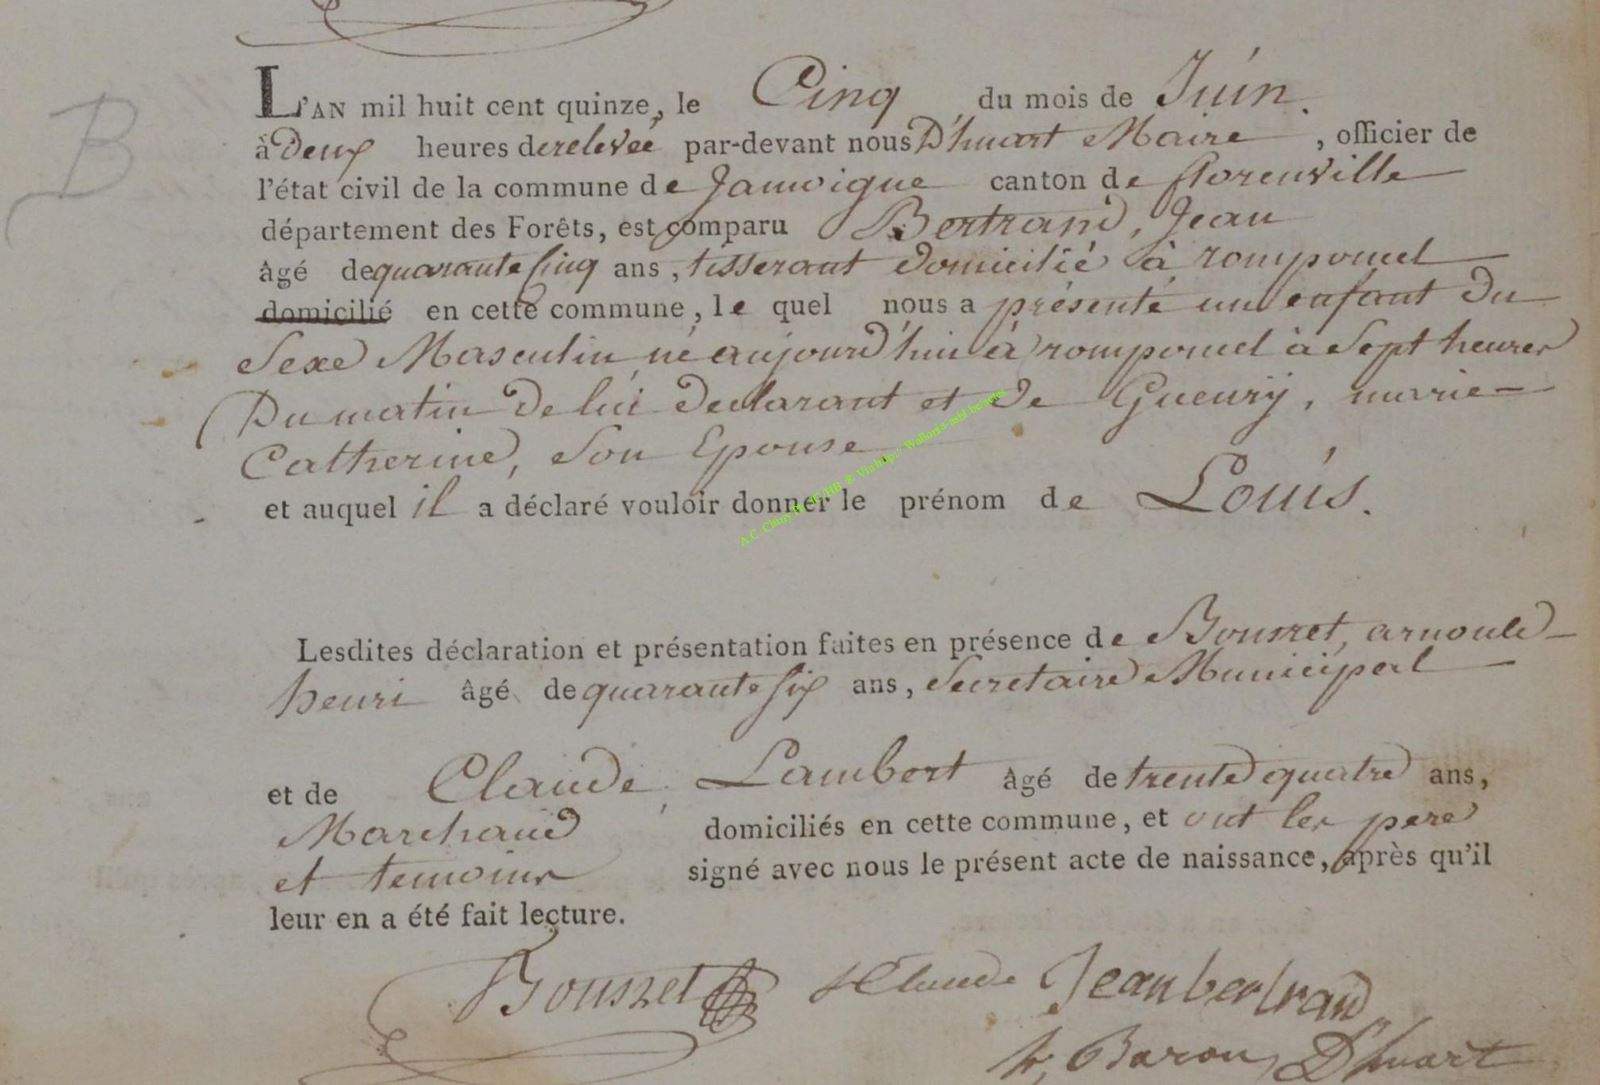 B
L'AN mil huit cent quinze, le Cinq du mois de Juin.
à deux heures de relevée par-devant nous D'huart Maire, officier de
l'état civil de la commune de Jamoigne canton de florenville
département des Forêts, est comparu Bertrand, Jean
âgé de quarante Cinq ans, tisserant domicilié à romponcel
domicilié en cette commune, le quel nous a présenté un enfant du
Sexe Masculin né aujourd'hui à romponcel à Sept heures
Du matin De lui declarant et De Gueury, marie
Catherine, Son Epouse
et auquel il a déclaré vouloir donner le prénom de Louis.
Lesdites déclaration et présentation faites en présence de Bousret, arnould
henri âgé de quarante Six ans, Secretaire Municipal
et de Claude, Lambert âgé de trente quatre ans,
Marchand domiciliés en cette commune, et ont les pere
et temoins signé avec nous le présent acte de naissance, après qu'il
leur en a été fait lecture.
Bousret Claude Jean bertrand
Baron D'huart